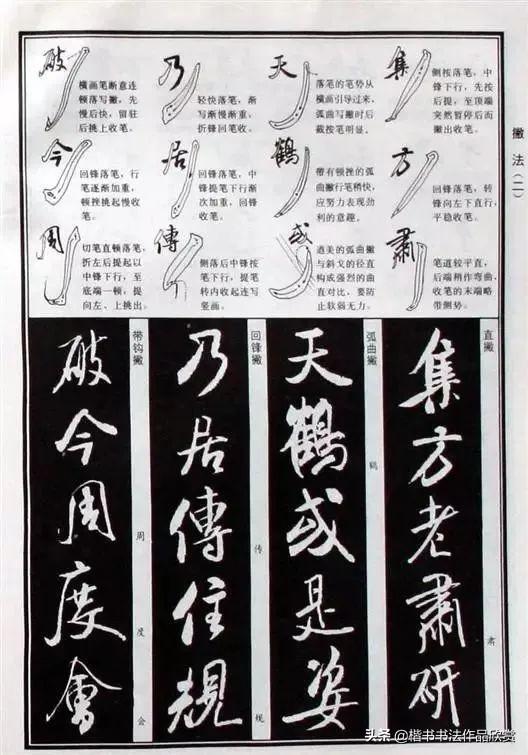 撇法(二)
集
侧按落笔，中
锋下行，先按
后提，至顶端
突然暂停后而
撇出收笔。
方
回锋落笔，转
锋向左下直行，
平稳收笔。
肅
笔道较平直，
后端稍作弯曲，
收笔的末端略
带侧势。
天
落笔的笔势从
横画引导过来，
弧曲写撇时后
截按笔明显。
鶴
带有顿挫的弧
曲撇行笔稍快，
应努力表现劲
利的意趣。
或
遒美的弧曲撇
与斜戈的径直
构成强烈的曲
直对比，要防
止软弱无力。
乃
轻快落笔，渐
写渐慢渐重，
折锋回笔收。
居
回锋落笔，中
锋提笔下行渐
次加重，回锋
收笔。
傳
侧落后中锋按
笔下行，提笔
转内收起连写
竖画。
破
横画笔断意连
顿落写撇，先
慢后快，留驻
后挑上收笔。
今
回锋落笔，行
笔逐渐加重，
顿挑起慢收
笔。
周
切笔直顿落笔，
折左后提起以
中锋下行，至
底端一顿，提
向左、上挑出。
直撇
肃
集方老肅研
弧曲撇
鹤
天鶴或是姿
回锋撇
传
规
乃居傳住規
带钩撇
周
度
会
破今周度會
头条@楷书书法作品欣赏